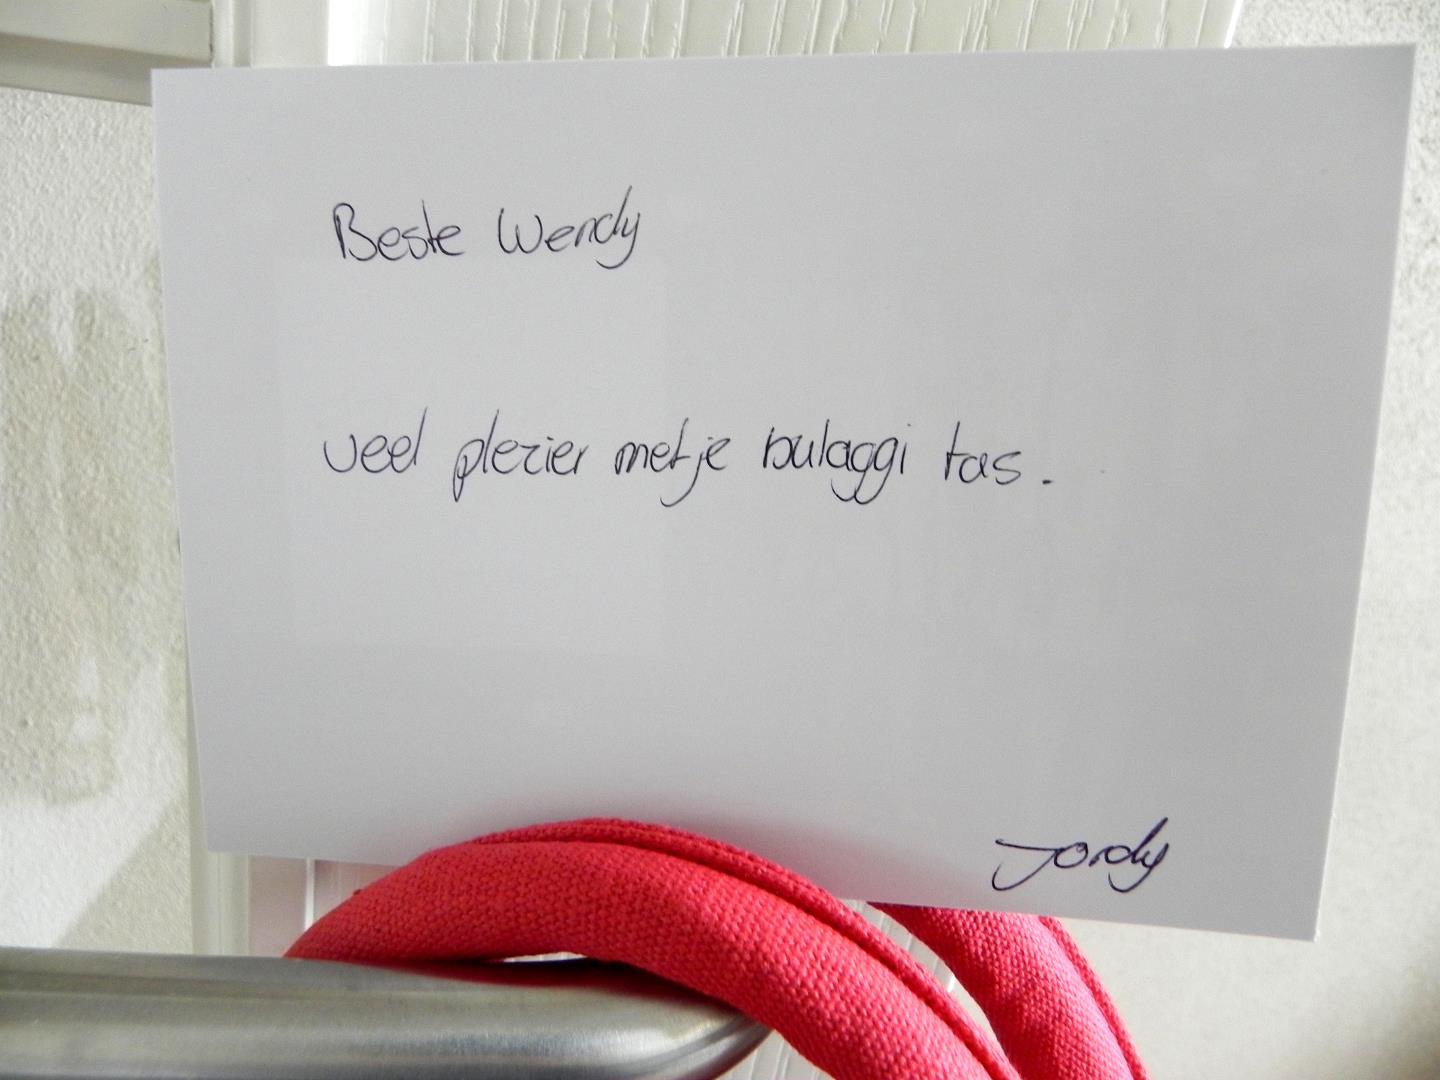 Beste Wendy
veel plezier met je bulaggi tas.
Jordy